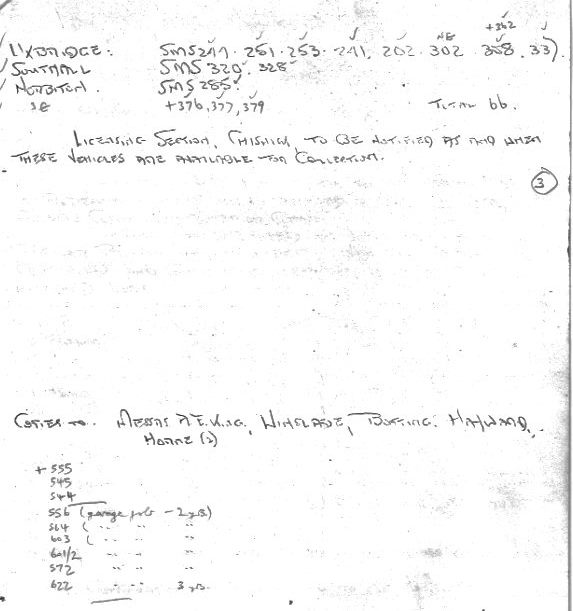 NB +362
UXBRIDGE: SMS 244. 251. 253. 241, 202. 302 358, 337.
SOUTHALL SMS 320, 328
NORBITON. SMS 285.
+376, 377, 379 TOTAL 66.
LICENSING SECTION, CHISWICK, TO BE NOTIFIED AS AND WHEN
THESE VEHICLES ARE AVAILABLE FOR COLLECTION.
3
COPIES TO. MESSRS KING, WINSLADE, BOTTING. HAYWARD,
HORNE (2)
+ 555
545
544
556 (garage jobs - 2 yrs)
564 ( " " "
603 ( " " "
601/2 " " "
572 " " "
622 " " 3 yrs.